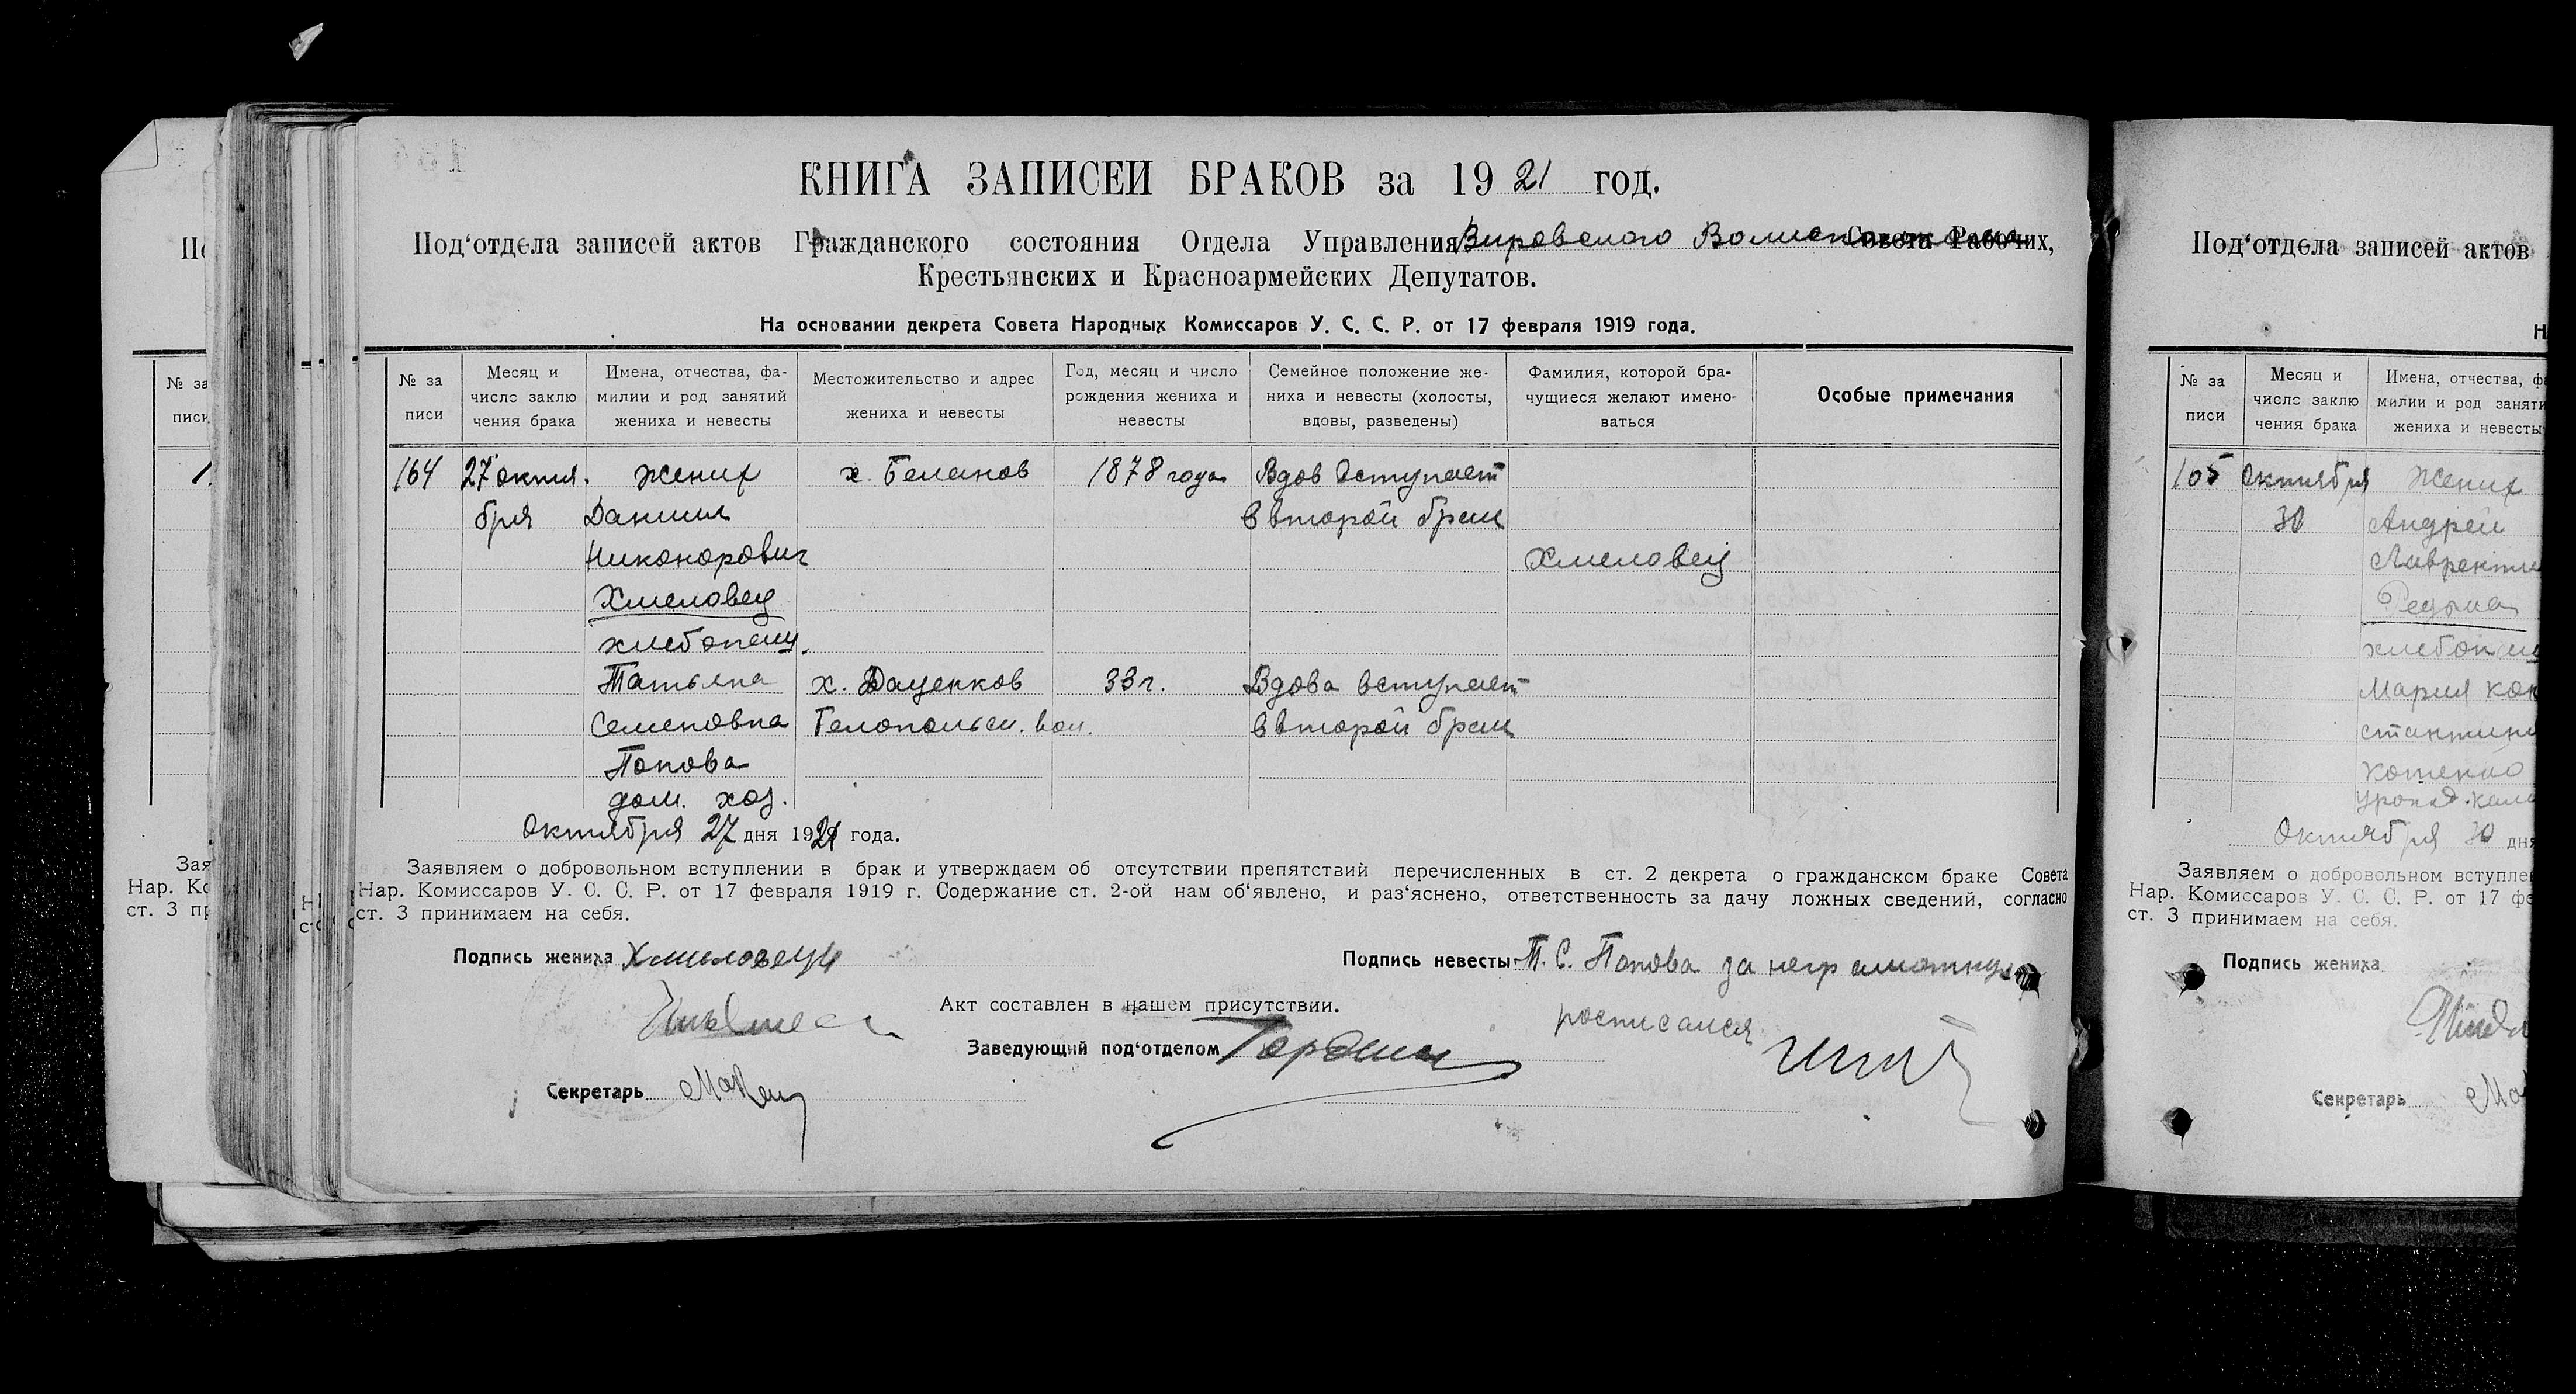 КНИГА ЗАПИСЕЙ БРАКОВ за 1921 год.
Под‘отдела записей актов Гражданского состояния Отдела Управления Вировского Совета Рабочих,
Крестьянских и Красноармейских Депутатов.
На основании декрета Совета Народных Комиссаров У. С. С. Р. от 17 февраля 1919 года.
№ за писи
Месяц и число заклю чения брака
Имена, отчества, фа- милии и род занятий жениха и невесты
Местожительство и адрес жениха и невесты
Год, месяц и число рождения жениха и невесты
Семейное положение же- ниха и невесты (холосты, вдовы, разведены)
Фамилия, которой бра- чущиеся желают имено- ваться
Особые примечания
164 27 октя. Жених х. Беланов 1878 года Вдов вступает
бря Даниил в второй брак
Никонорович Хмеловец
Хмеловец
хлебопащ.
Татьяна х. Даценков 33 г. Вдова вступает
Семеновна Белопольск. вол. в второй брак
Попова
дом. хоз.
Октября 27 дня 1921 года.
Заявляем о добровольном вступлении в брак и утверждаем об отсутствии препятствий перечисленных в ст. 2 декрета о гражданском браке Совета
Нар. Комиссаров У. С. С. Р. от 17 февраля 1919 г. Содержание ст. 2-ой нам об‘явлено, и раз‘яснено, ответственность за дачу ложных сведений, согласно
ст. 3 принимаем на себя.
Подпись жениха Хмиловець
Подпись невесты Т. С. Попова за неграмотную
росписался
Акт составлен в нашем присутствии.
Заведующий под‘отделом
Секретарь
Под‘отдела записей актов
Н
№ за писи
Месяц и число заклю чения брака
Имена, отчества, фа милии и род заняти жениха и невесты
105 Октября Жених
30 Андрей
Лаврентие
Редька
хлебопаш
Мария Кон
стантино
Котенко
Октября 30 дня
Заявляем о добровольном вступле
Нар. Комиссаров У. С. С. Р. от 17 фе
ст. 3 принимаем на себя.
Подпись жениха
Секретарь
№ за
писи
Зая
Нар. Ко
ст. 3 пр